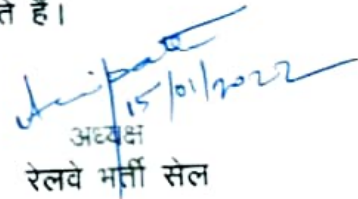 ते हैं।
15/01/2022
अध्यक्ष
रेलवे भर्ती सेल